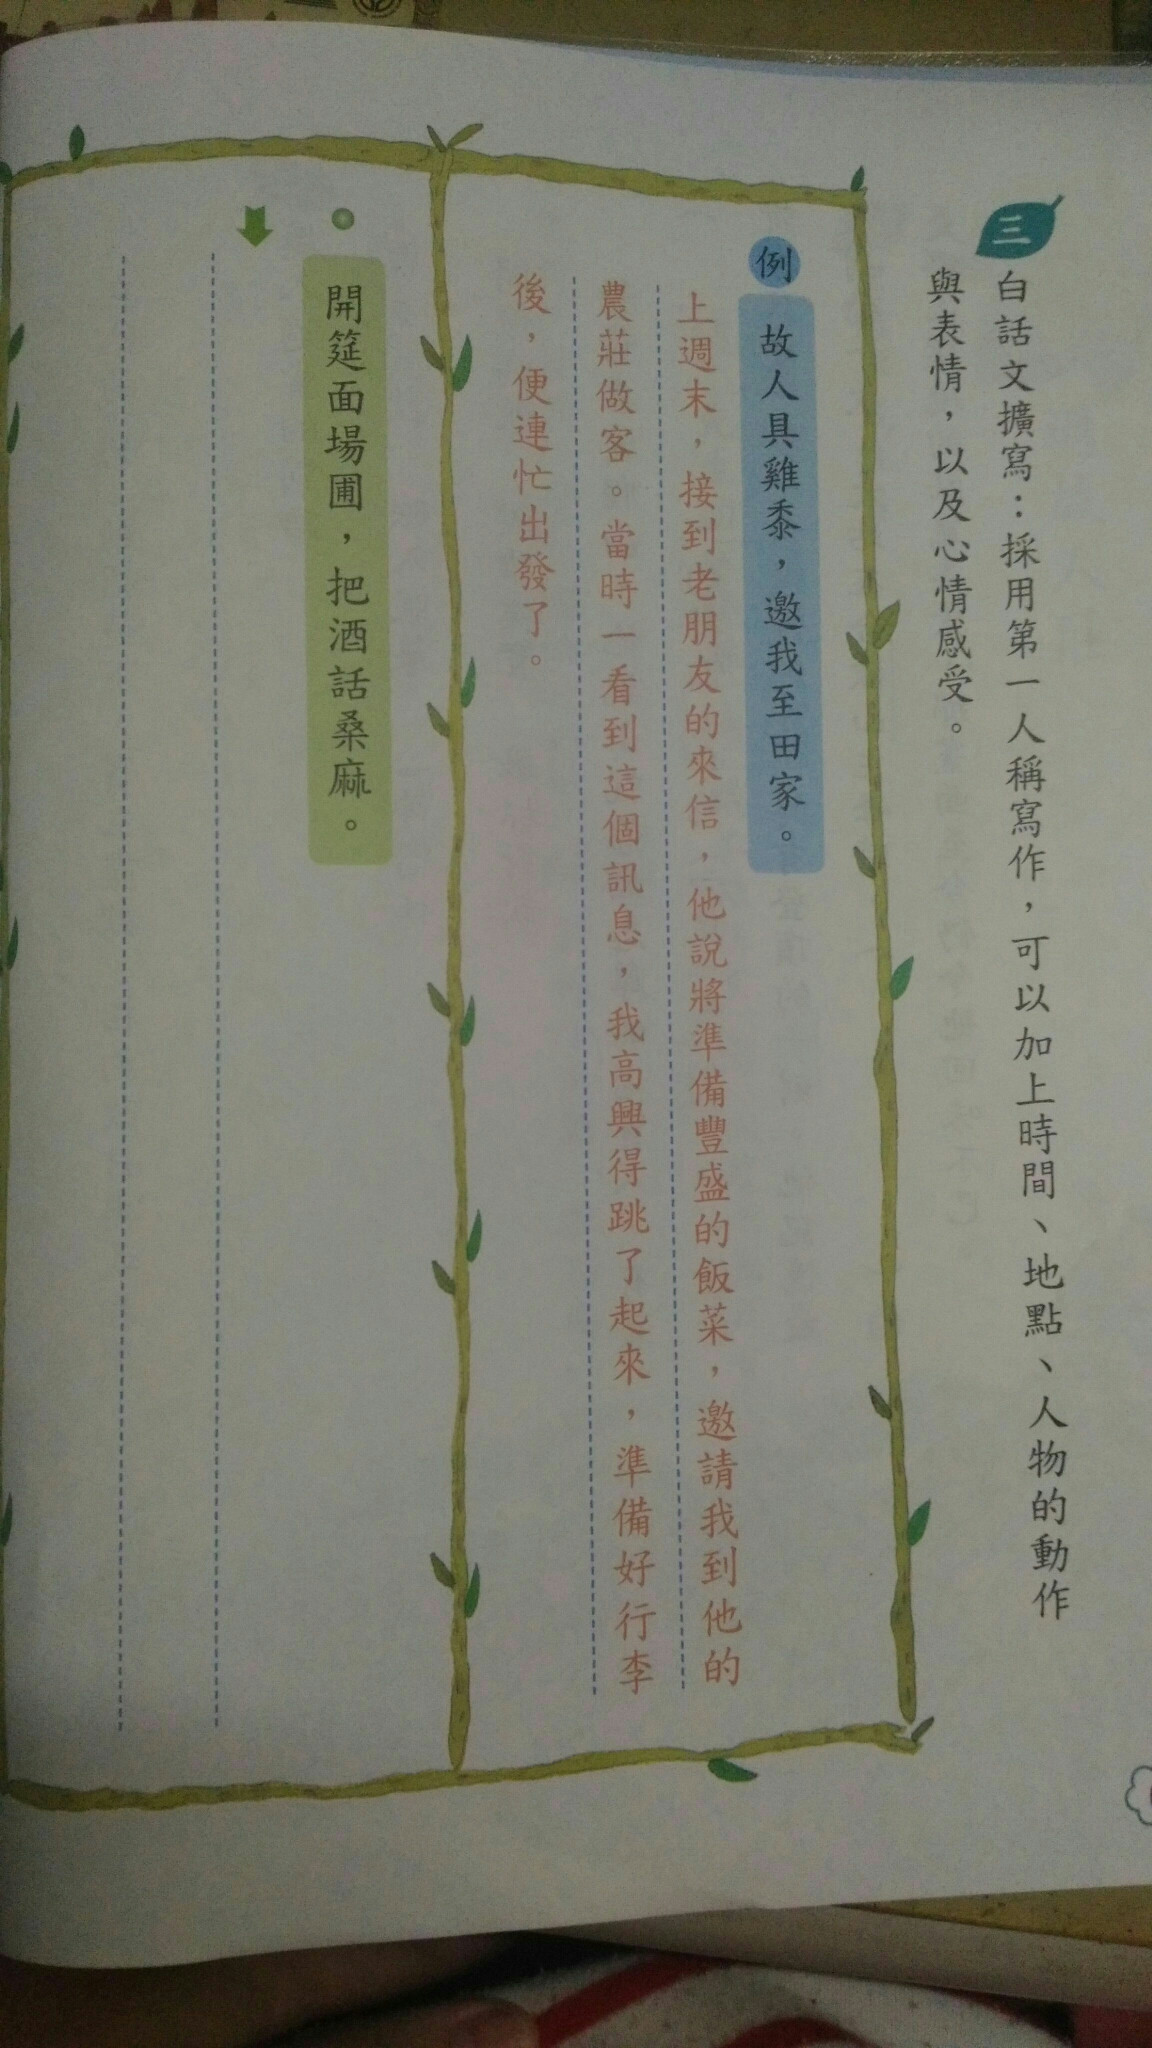 三
白話文擴寫：採用第一人稱寫作，可以加上時間、地點、人物的動作
與表情，以及心情感受。
例
故人具雞黍，邀我至田家。
上週末，接到老朋友的來信，他說將準備豐盛的飯菜，邀請我到他的
農莊做客。當時一看到這個訊息，我高興得跳了起來，準備好行李
後，便連忙出發了。
開筵面場圃，把酒話桑麻。